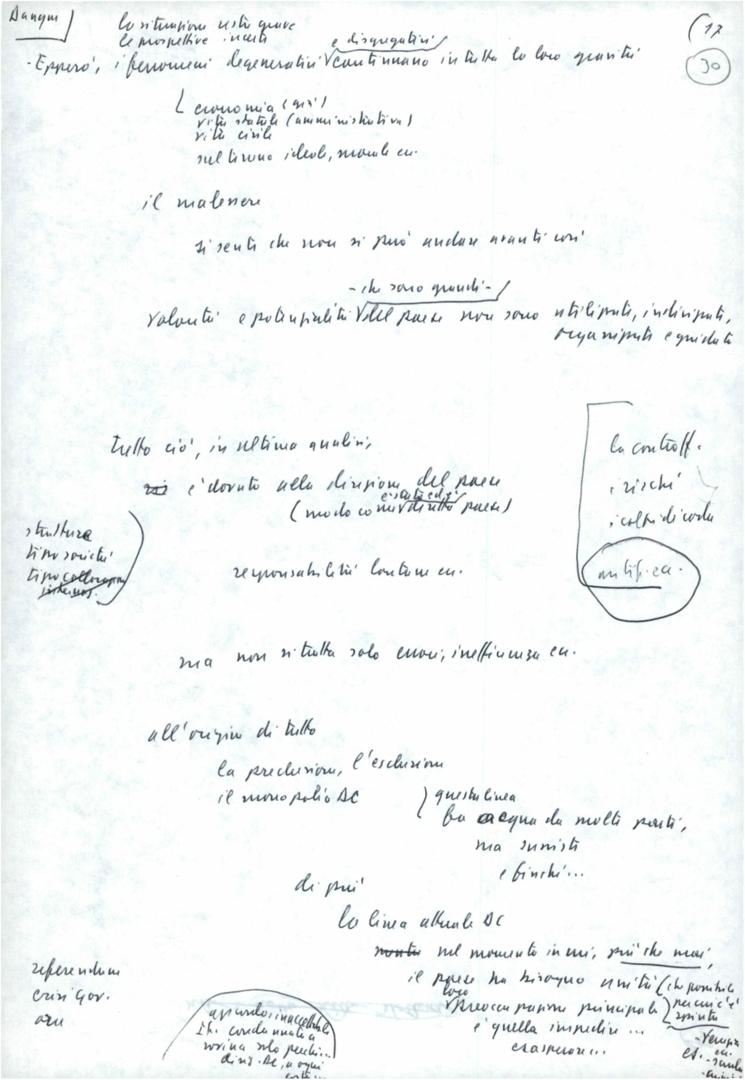 Dunque
la situazione resta grave
le prospettive incerte
(17
30
e disgregativi
- Epperò, i fenomeni degenerativi continuano in tutta la loro gravità
economia (crisi)
vita statale (amministrativa)
vita civile
sul terreno ideale, morale ecc.
il malessere
si sente che non si può andare avanti così
- che sono grandi -
volontà e potenzialità del paese non sono utilizzati, indirizzati,
organizzati e guidati
tutto ciò, in ultima analisi,
è dovuto alla direzione del paese
è stato
(modo come diretto paese)
la controff.
i rischi
i colpi di coda
struttura
tipo società
tipo
responsabilità lontane ecc.
ma non si tratta solo errori, inefficienza ecc.
all'origine di tutto
la preclusione, l'esclusione
il monopolio DC
questa linea
fa acqua da molte parti,
ma sussiste
e finché...
di più
la linea attuale DC
nel momento in cui, più che mai,
il paese ha bisogno unità (che possibile
loro
preoccupazione principale
perché c'è
spinta
è quella impedire ...
esasperare...
referendum
crisi Gov.
ora
assurdo, inaccettabile
It. condannata a
rovina solo perché...